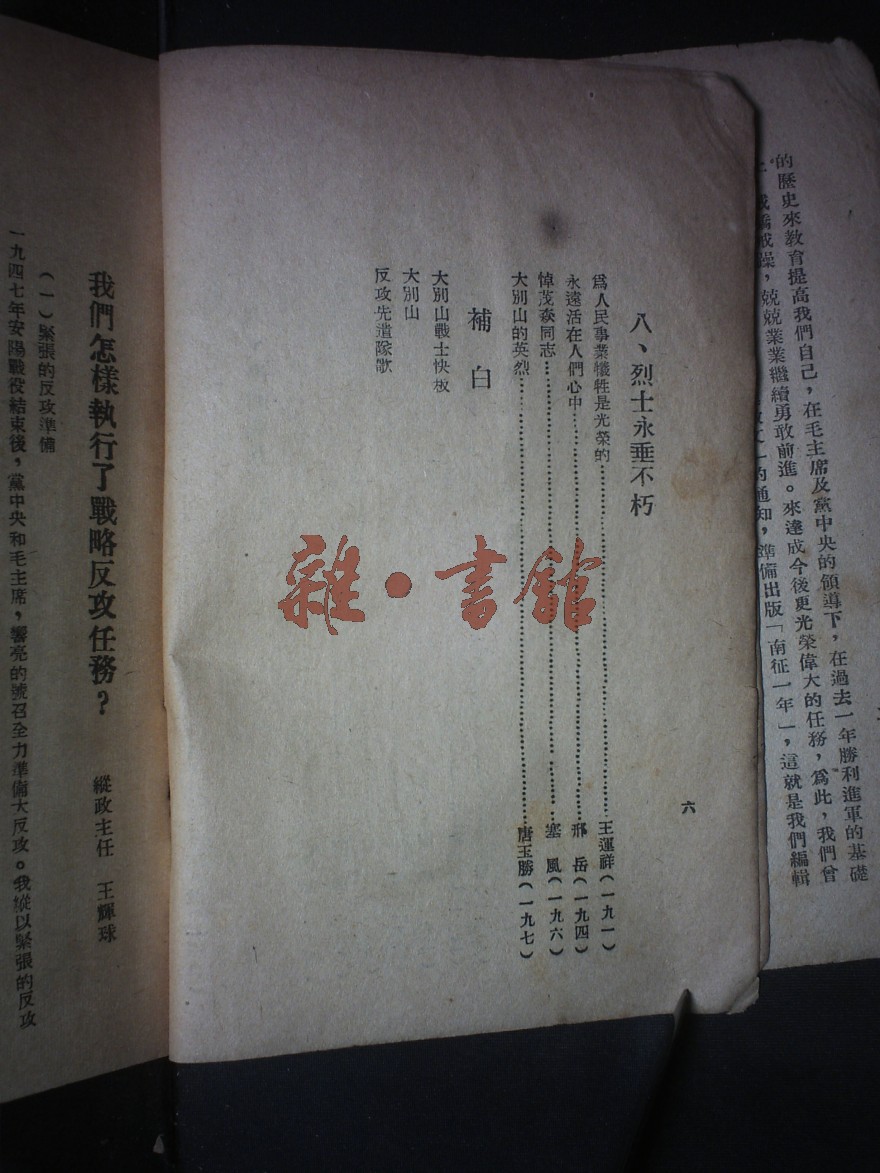 的歷史來教育提高我們自己，在毛主席及黨中央的領導下，在過去一年勝利進軍的基礎
戒驕戒躁，兢兢業業繼續勇敢前進。來達成今後更光榮偉大的任務，爲此，我們曾
的通知，準備出版「南征一年」，這就是我們編輯
六
八、烈士永垂不朽
爲人民事業犧牲是光榮的……王運祥（一九一）
永遠活在人們心中……邢　岳（一九四）
悼茂森同志……塞　風（一九六）
大別山的英烈……唐玉勝（一九七）
補白
大別山戰士快板
大別山
反攻先遣隊歌
雜·書館
我們怎樣執行了戰略反攻任務？
縱政主任　王輝球
（一）緊張的反攻準備
一九四七年安陽戰役結束後，黨中央和毛主席，響亮的號召全力準備大反攻。我縱以緊張的反攻